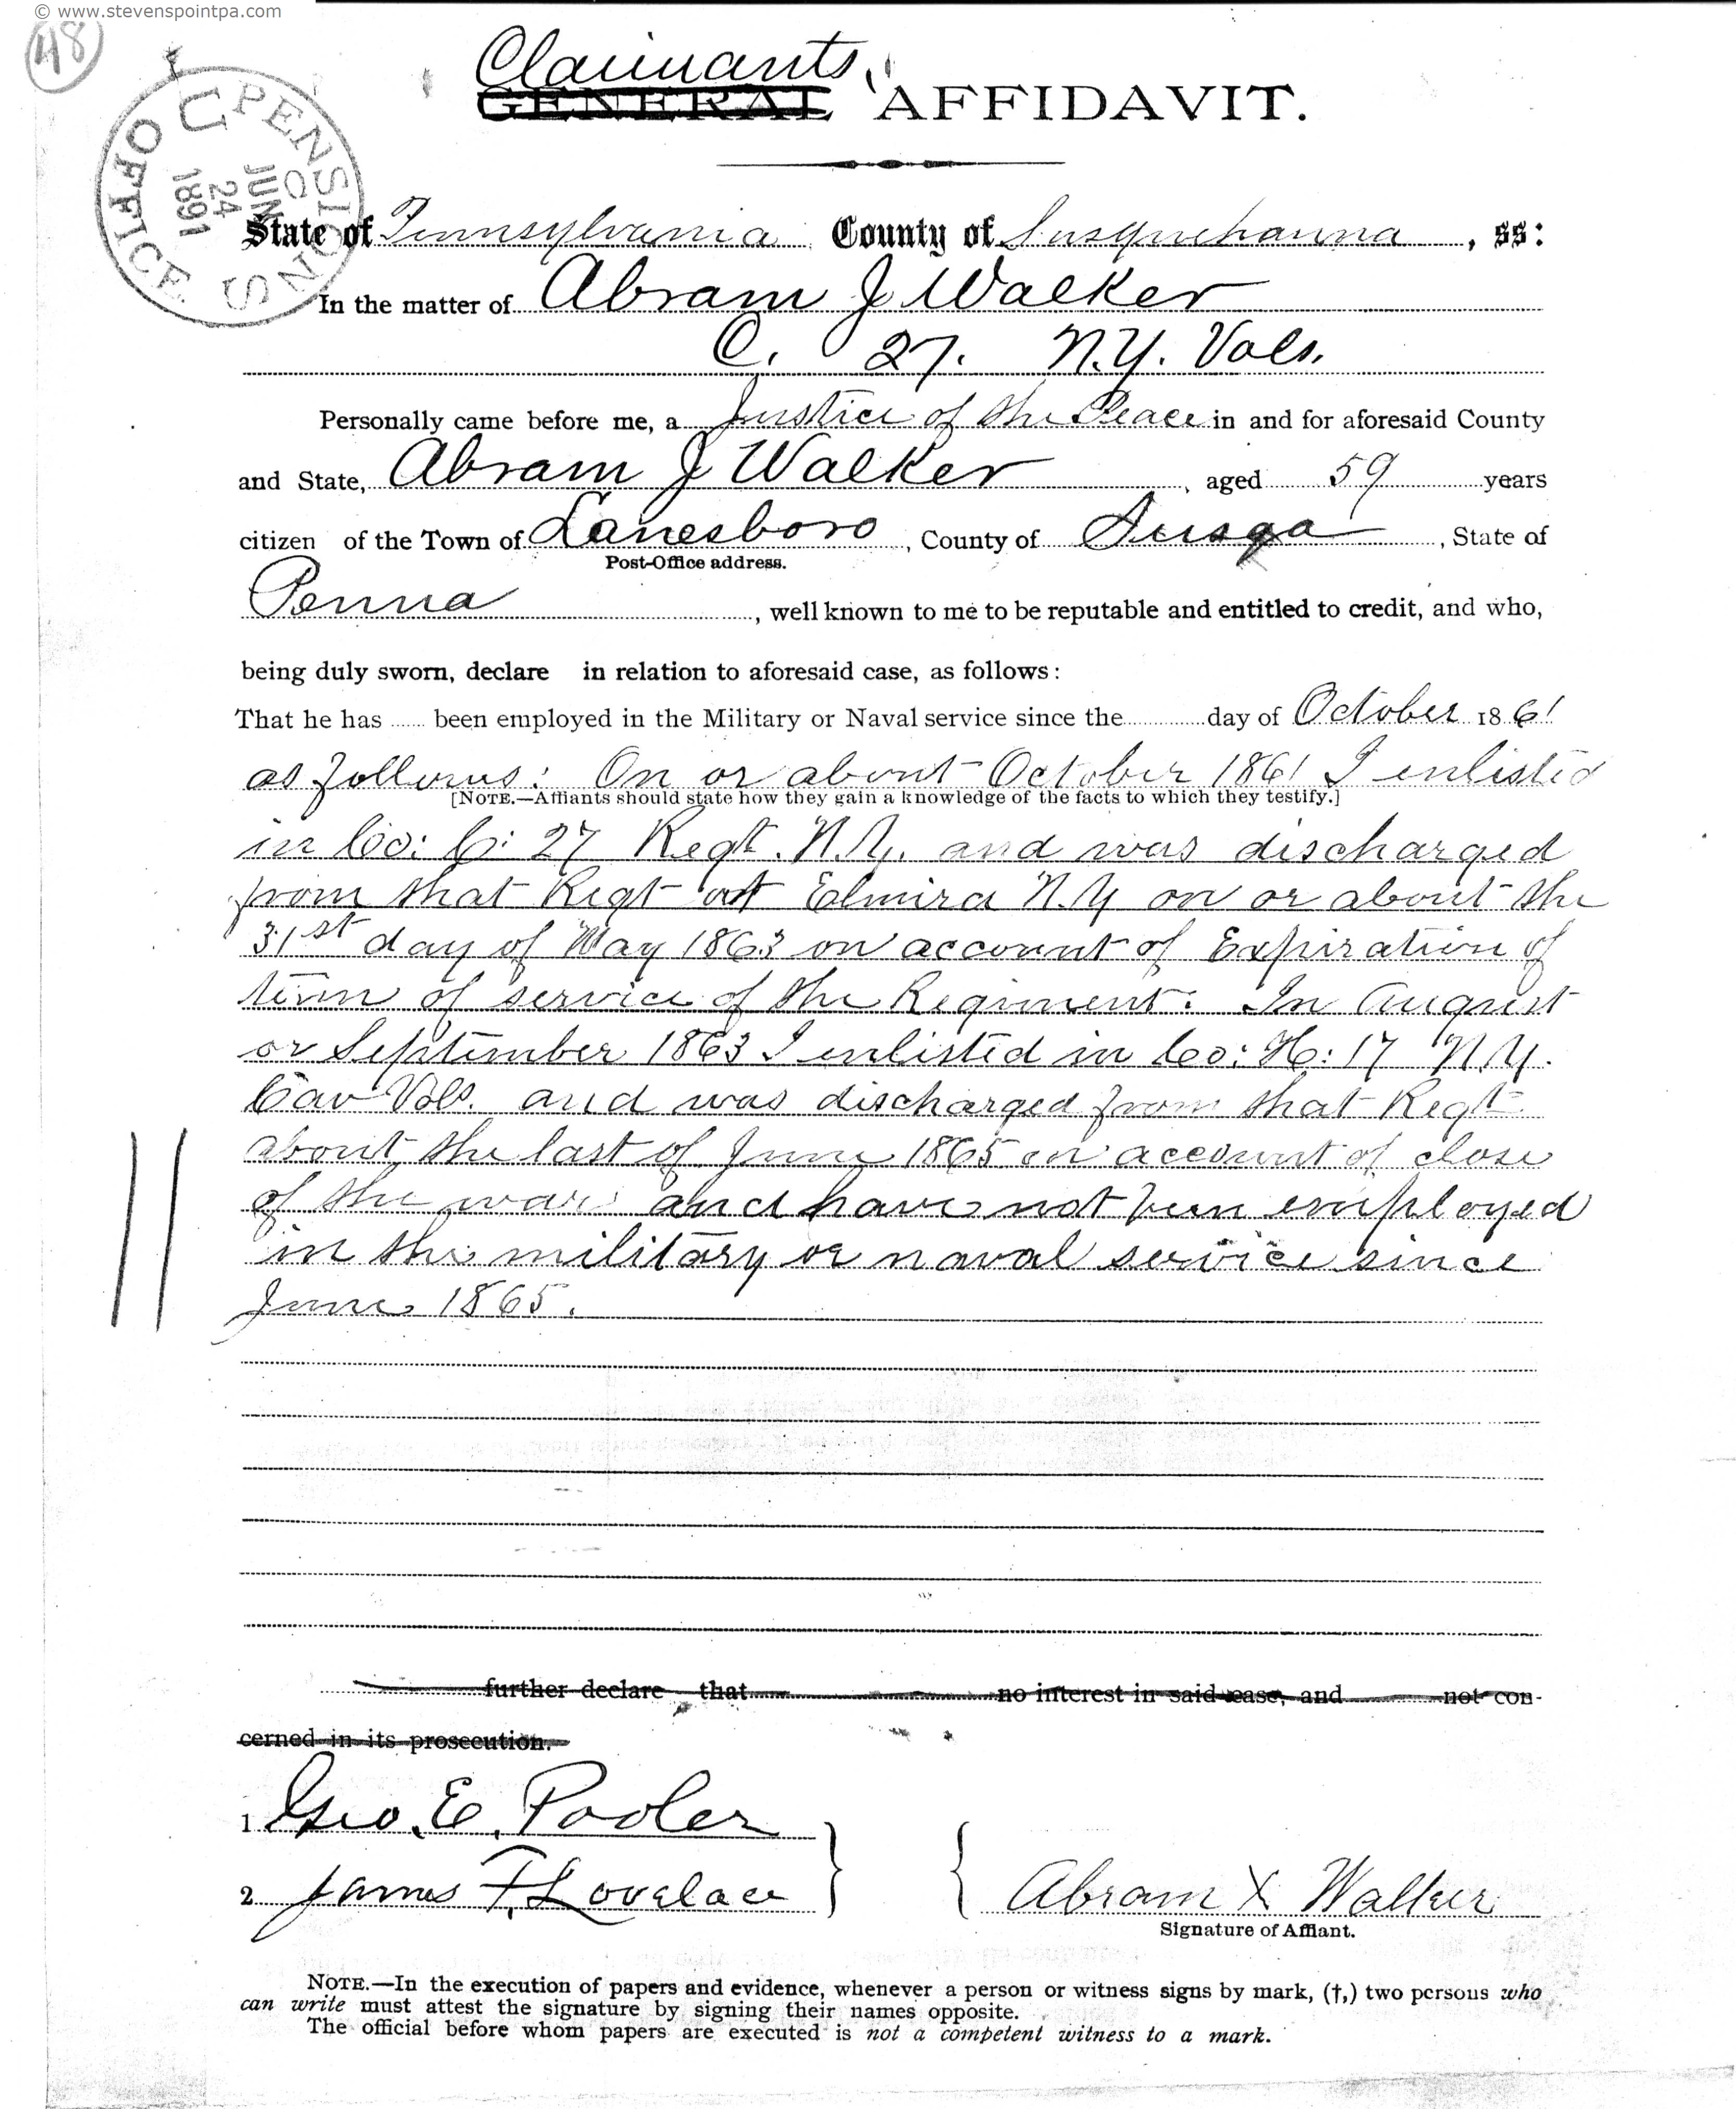 © www.stevenspointpa.com
48
Claimants
GENERAL AFFIDAVIT.
U S PENSION OFFICE
JUN 24 1891
State of Pennsylvania County of Susquehanna, ss:
In the matter of Abram J Walker
C. 27. N.Y. Vols.
Personally came before me, a Justice of the Peace in and for aforesaid County
and State, Abram J Walker, aged 59 years
citizen of the Town of Lanesboro, County of Susqa, State of
Post-Office address.
Penna, well known to me to be reputable and entitled to credit, and who,
being duly sworn, declare in relation to aforesaid case, as follows:
That he has been employed in the Military or Naval service since the day of October 1861
as follows: On or about October 1861 I enlisted
[NOTE.—Affiants should state how they gain a knowledge of the facts to which they testify.]
in Co: C: 27 Regt. N.Y. and was discharged
from that Regt at Elmira N.Y on or about the
31st day of May 1863 on account of Expiration of
term of service of the Regiment. In August
or September 1863 I enlisted in Co: H: 17 N.Y.
Cav Vols. and was discharged from that Regt
about the last of June 1865 on account of close
of the war and have not been employed
in the military or naval service since
June 1865.
further declare that no interest in said case, and not con-
cerned in its prosecution.
1 Geo. E. Pooler
2 James F. Lovelace
Abram X Walker
Signature of Affiant.
NOTE.—In the execution of papers and evidence, whenever a person or witness signs by mark, (†,) two persons who
can write must attest the signature by signing their names opposite.
The official before whom papers are executed is not a competent witness to a mark.